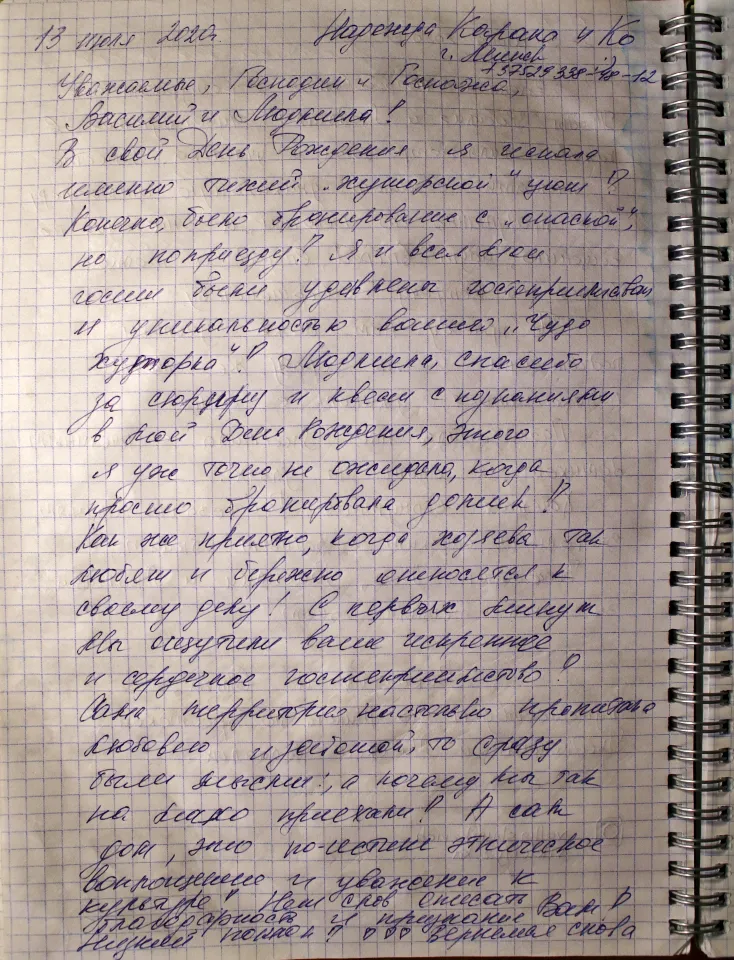 13 июля 2020г. Надежда Карако и Ко
г. Минск
+37529 338-48-12
Уважаемые, Господин и Госпожа,
Василий и Людмила!
В свой День Рождения я искала
именно тихий „хуторской" уют!
Конечно, было бронирование с „опаской",
но по приезду! Я и все мои
гости были удивлены гостеприимством
и уникальностью вашего „Чудо
Хуторка"! Людмила, спасибо
за сюрприз и квест с познаниями
в мой День Рождения, этого
я уж точно не ожидала, когда
просто бронировала домик!
Как же приятно, когда хозяева так
любят и бережно относятся к
своему делу! С первых минут
мы ощутили ваше искреннее
и сердечное гостеприимство!
Сама территория настолько пропитана
любовью и заботой, то сразу
были мысли: а почему мы так
на мало приехали! А сам
дом, это по-истине этническое
воплощение и уважение к
культуре! Нет слов описать
благодарность и признание Вам!
Низкий поклон! ♡♡♡ Вернемся снова